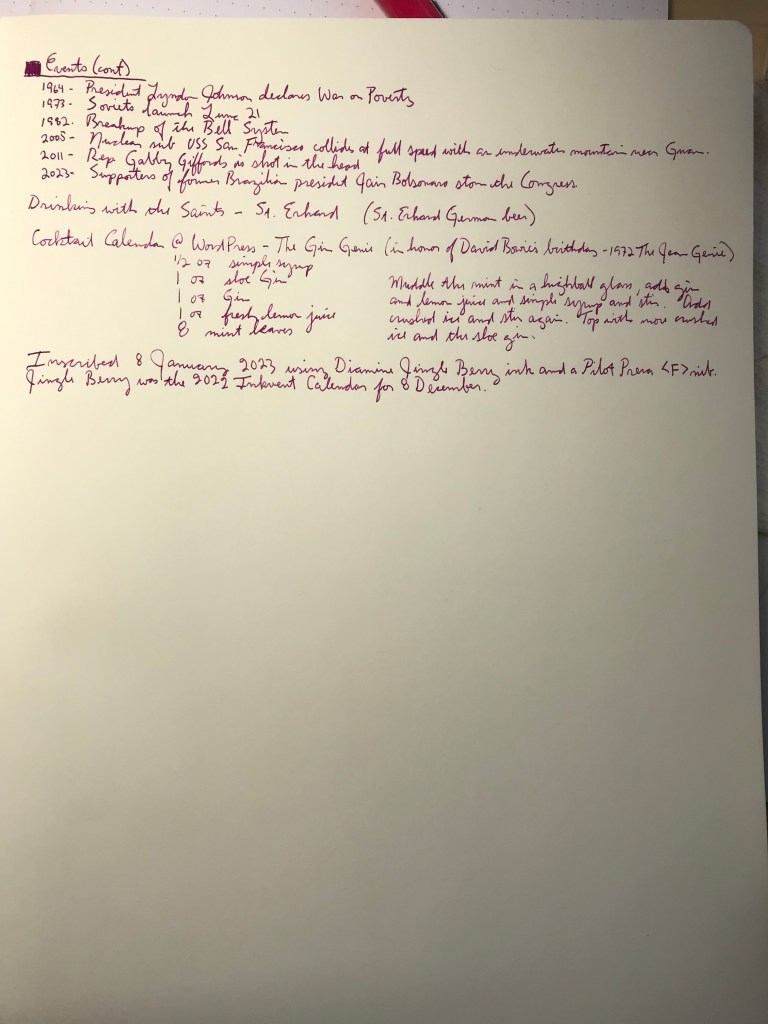 Events (cont)
1964 - President Lyndon Johnson declares War on Poverty
1973 - Soviets launch Luna 21
1982. Breakup of the Bell System
2005 - Nuclear sub USS San Francisco collides at full speed with an underwater mountain near Guam.
2011 - Rep Gabby Giffords is shot in the head
2023 - Supporters of former Brazilian president Jair Bolsonaro storm the Congress.
Drinking with the Saints - St. Erhard (St. Erhard German beer)
Cocktail Calendar @ WordPress - The Gin Genie (in honor of David Bowie's birthday - 1972 The Jean Genie)
1/2 oz simple syrup
1 oz sloe Gin
1 oz Gin
1 oz fresh lemon juice
8 mint leaves
Muddle the mint in a highball glass, add gin
and lemon juice and simple syrup and stir. Add
crushed ice and stir again. Top with more crushed
ice and the sloe gin.
Inscribed 8 January 2023 using Diamine Jingle Berry ink and a Pilot Prera <F> nib.
Jingle Berry was the 2022 Inkvent Calendar for 8 December.